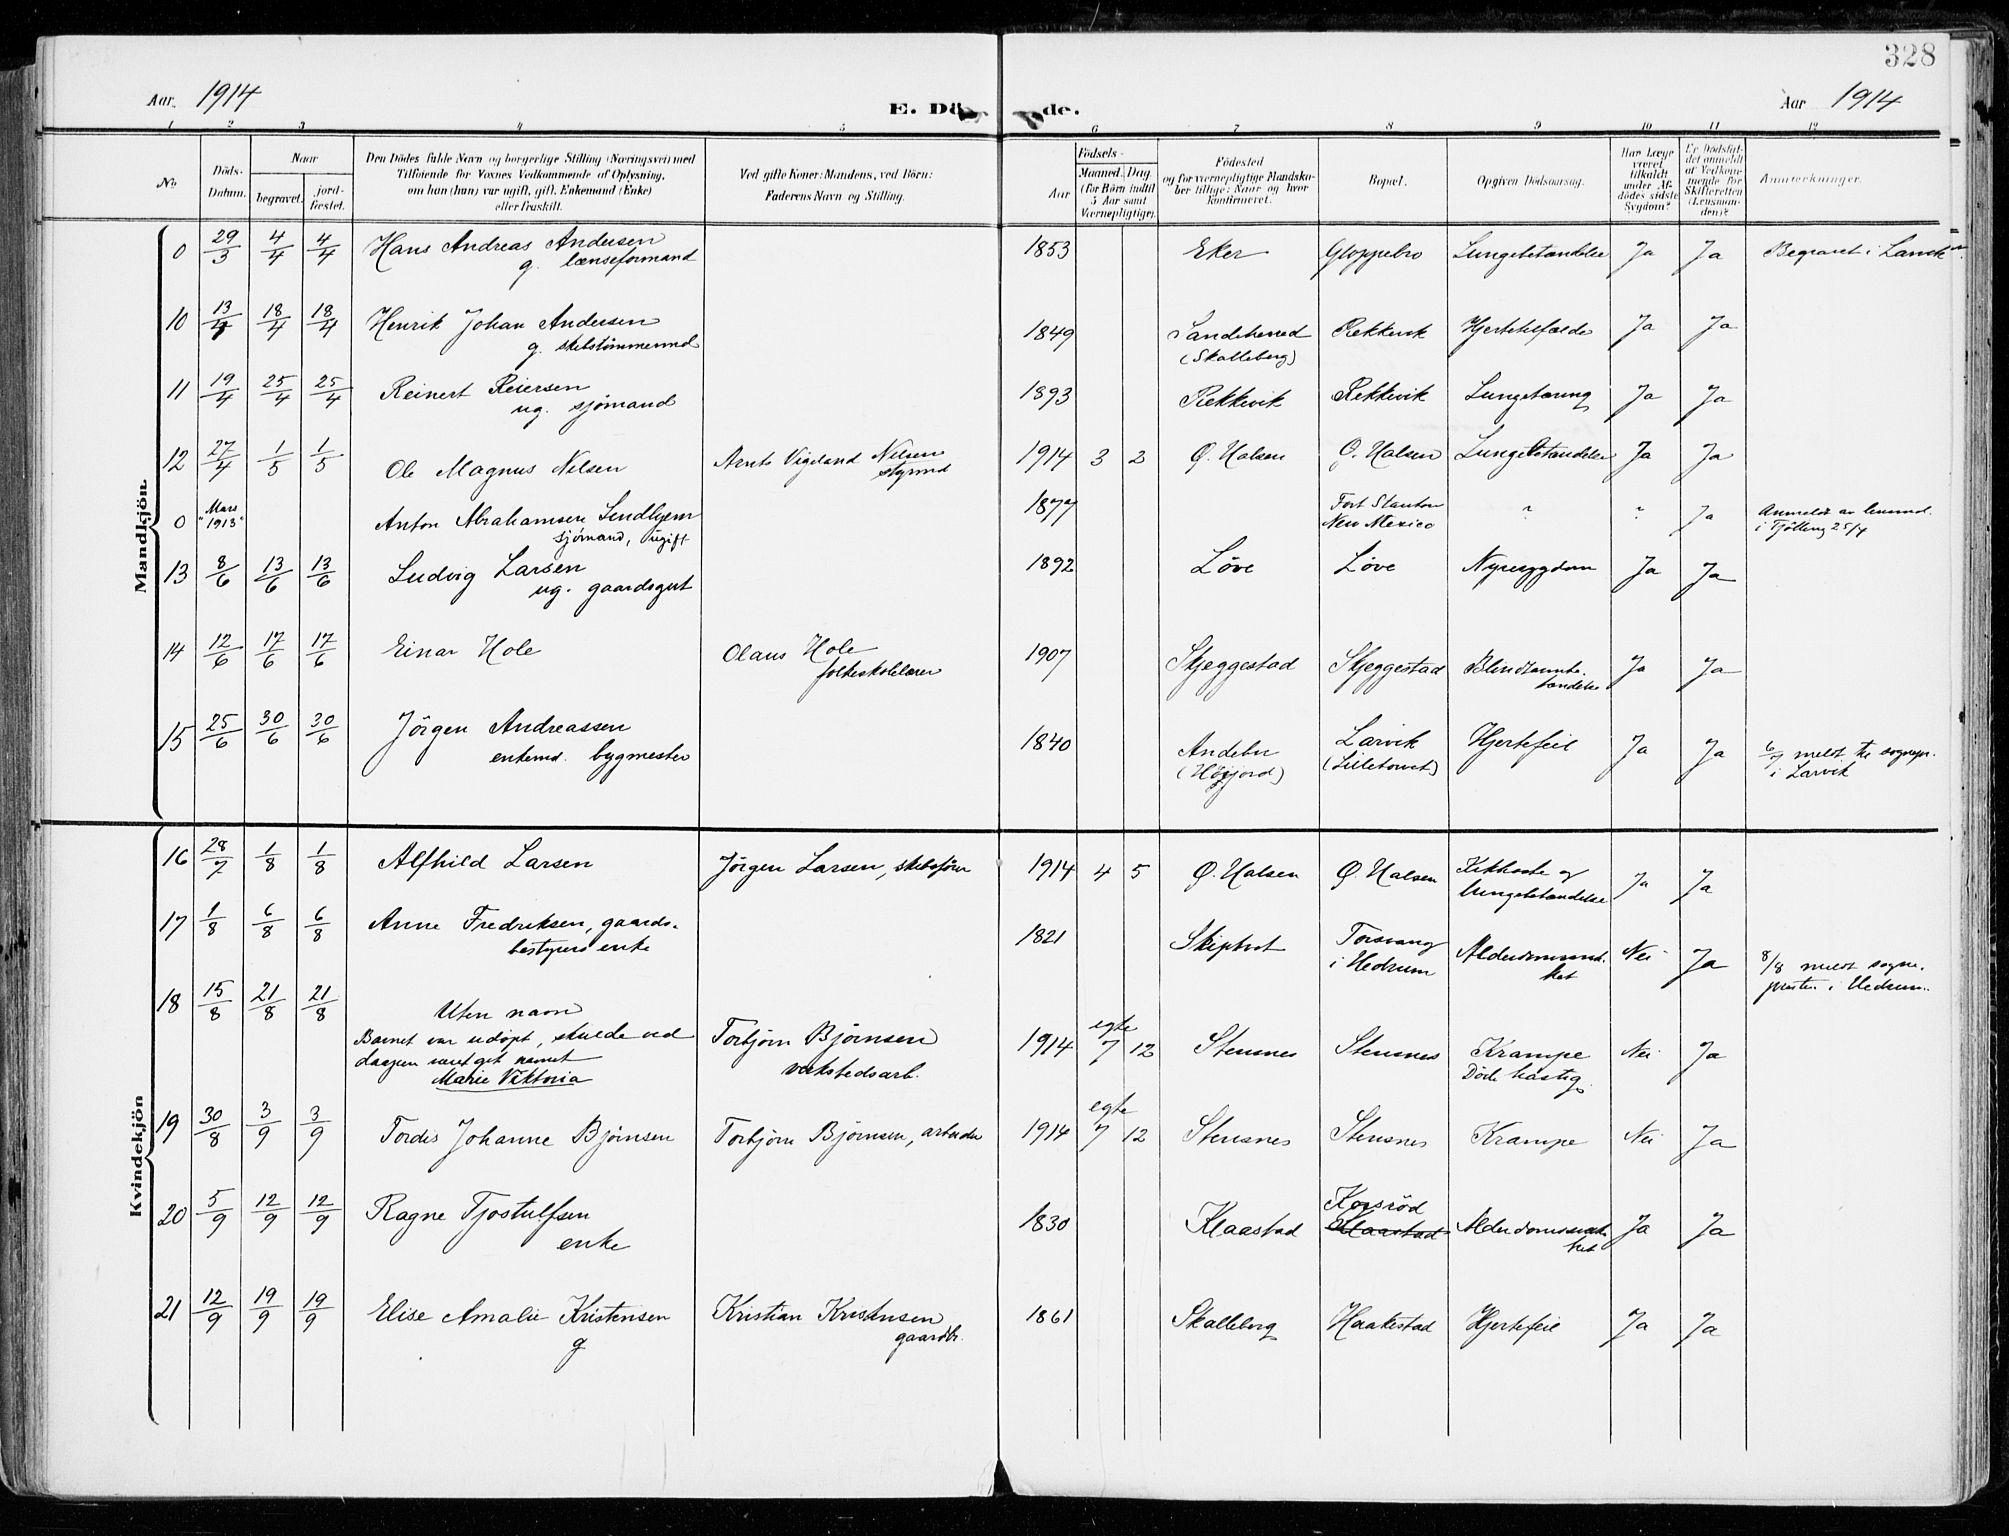 328
Aar. 1914
E. Dö de.
Aar 1914
1 2 3 4 5 6 7 8 9 10 11 12
No.
Döds-
Datum.
Naar
begravet.
jord-
fæstet.
Den Dödes fulde Navn og borgerlige Stilling (Næringsvei) med
Tilföiende for Voxnes Vedkommende af Oplysning,
om han (hun) var ugift, gift, Enkemand (Enke)
eller fraskilt.
Ved gifte Koner: Mandens, ved Börn:
Faderens Navn og Stilling.
Födsels-
Aar
Maaned. Dag
(for Börn indtil
5 Aar samt
Værnepligtige).
Födested
og for værnepligtige Mandska-
ber tillige: Naar og hvor
konfirmeret.
Bopæl.
Opgiven Dödsaarsag.
Har Læge
været
tilkaldt
under Af-
dödes sidste
Sygdom?
Er Dödsfal-
det anmeldt
af Vedkom-
mende for
Skifteretten
(Lensman-
den)?
Anmerkninger.
Mandkjön.
0 29/3 4/4 4/4 Hans Andreas Andersen 1853 Eker Gloppebro Lungebetændelse Ja Ja Begravet i Larvik
g. lænseformand
10 13/4 18/4 18/4 Henrik Johan Andersen 1849 Sandeherred Rekkevik Hjertetilfælde Ja Ja
g. skibstømmermd (Skalleberg)
11 19/4 25/4 25/4 Reinert Reiersen 1893 Rekkevik Rekkevik Lungetæring Ja Ja
ug. sjømand
12 27/4 1/5 1/5 Ole Magnus Nilsen Arnts Vigeland Nilsen 1914 3 2 Ø. Halsen Ø. Halsen Lungebetændelse Ja Ja
styrmd
0 Mars Anton Abrahamsen 1877 Fort Stanton ? ? Ja Anmeldt av lensmd.
"1913" sjømand, ugift New Mexico i Tjølling 25/4
13 8/6 13/6 13/6 Ludvig Larsen 1892 Løve Løve Nyresygdom Ja Ja
ug. gaardsgut
14 12/6 17/6 17/6 Einar Hole Olaus Hole 1907 Skjeggestad Skjeggestad Blindtarmbe- Ja Ja
folkeskolelærer tændelse
15 25/6 30/6 30/6 Jörgen Andreassen 1840 Andebu Larvik Hjertefeil Ja Ja 6/7 meldt til sognepr.
enkemd. bygmester (Høijord) (Lilletorvet) i Larvik
Kvindekjön
16 28/7 1/8 1/8 Alfhild Larsen Jörgen Larsen, skibsfører 1914 4 5 Ø. Halsen Ø. Halsen Kikhoste og Ja Ja
lungebetændelse
17 1/8 6/8 6/8 Anne Fredriksen, gaards- 1821 Skiptvet Torsvang Alderdomssvak- Nei Ja 8/8 meldt sogne-
bestyrers enke i Hedrum het presten i Hedrum.
18 15/8 21/8 21/8 Uten navn Torbjørn Bjørnsen 1914 egte 7 12 Stensnes Stensnes Krampe Nei Ja
Barnet var udøpt, skulde ved verkstedsarb. Døde hastig
daapen været git navnet
Marie Viktoria
19 30/8 3/9 3/9 Tordis Johanne Bjørnsen Torbjørn Bjørnsen, arbeider 1914 egte 7 12 Stensnes Stensnes Krampe Nei Ja
20 5/9 12/9 12/9 Ragne Tjostulfsen 1830 Klaastad Korsröd Alderdomssvak- Ja Ja
enke Klaastad het
21 12/9 19/9 19/9 Elise Amalie Kristensen Kristian Kristensen 1861 Skalleberg Haakestad Hjertefeil Ja Ja
g gaardbr.